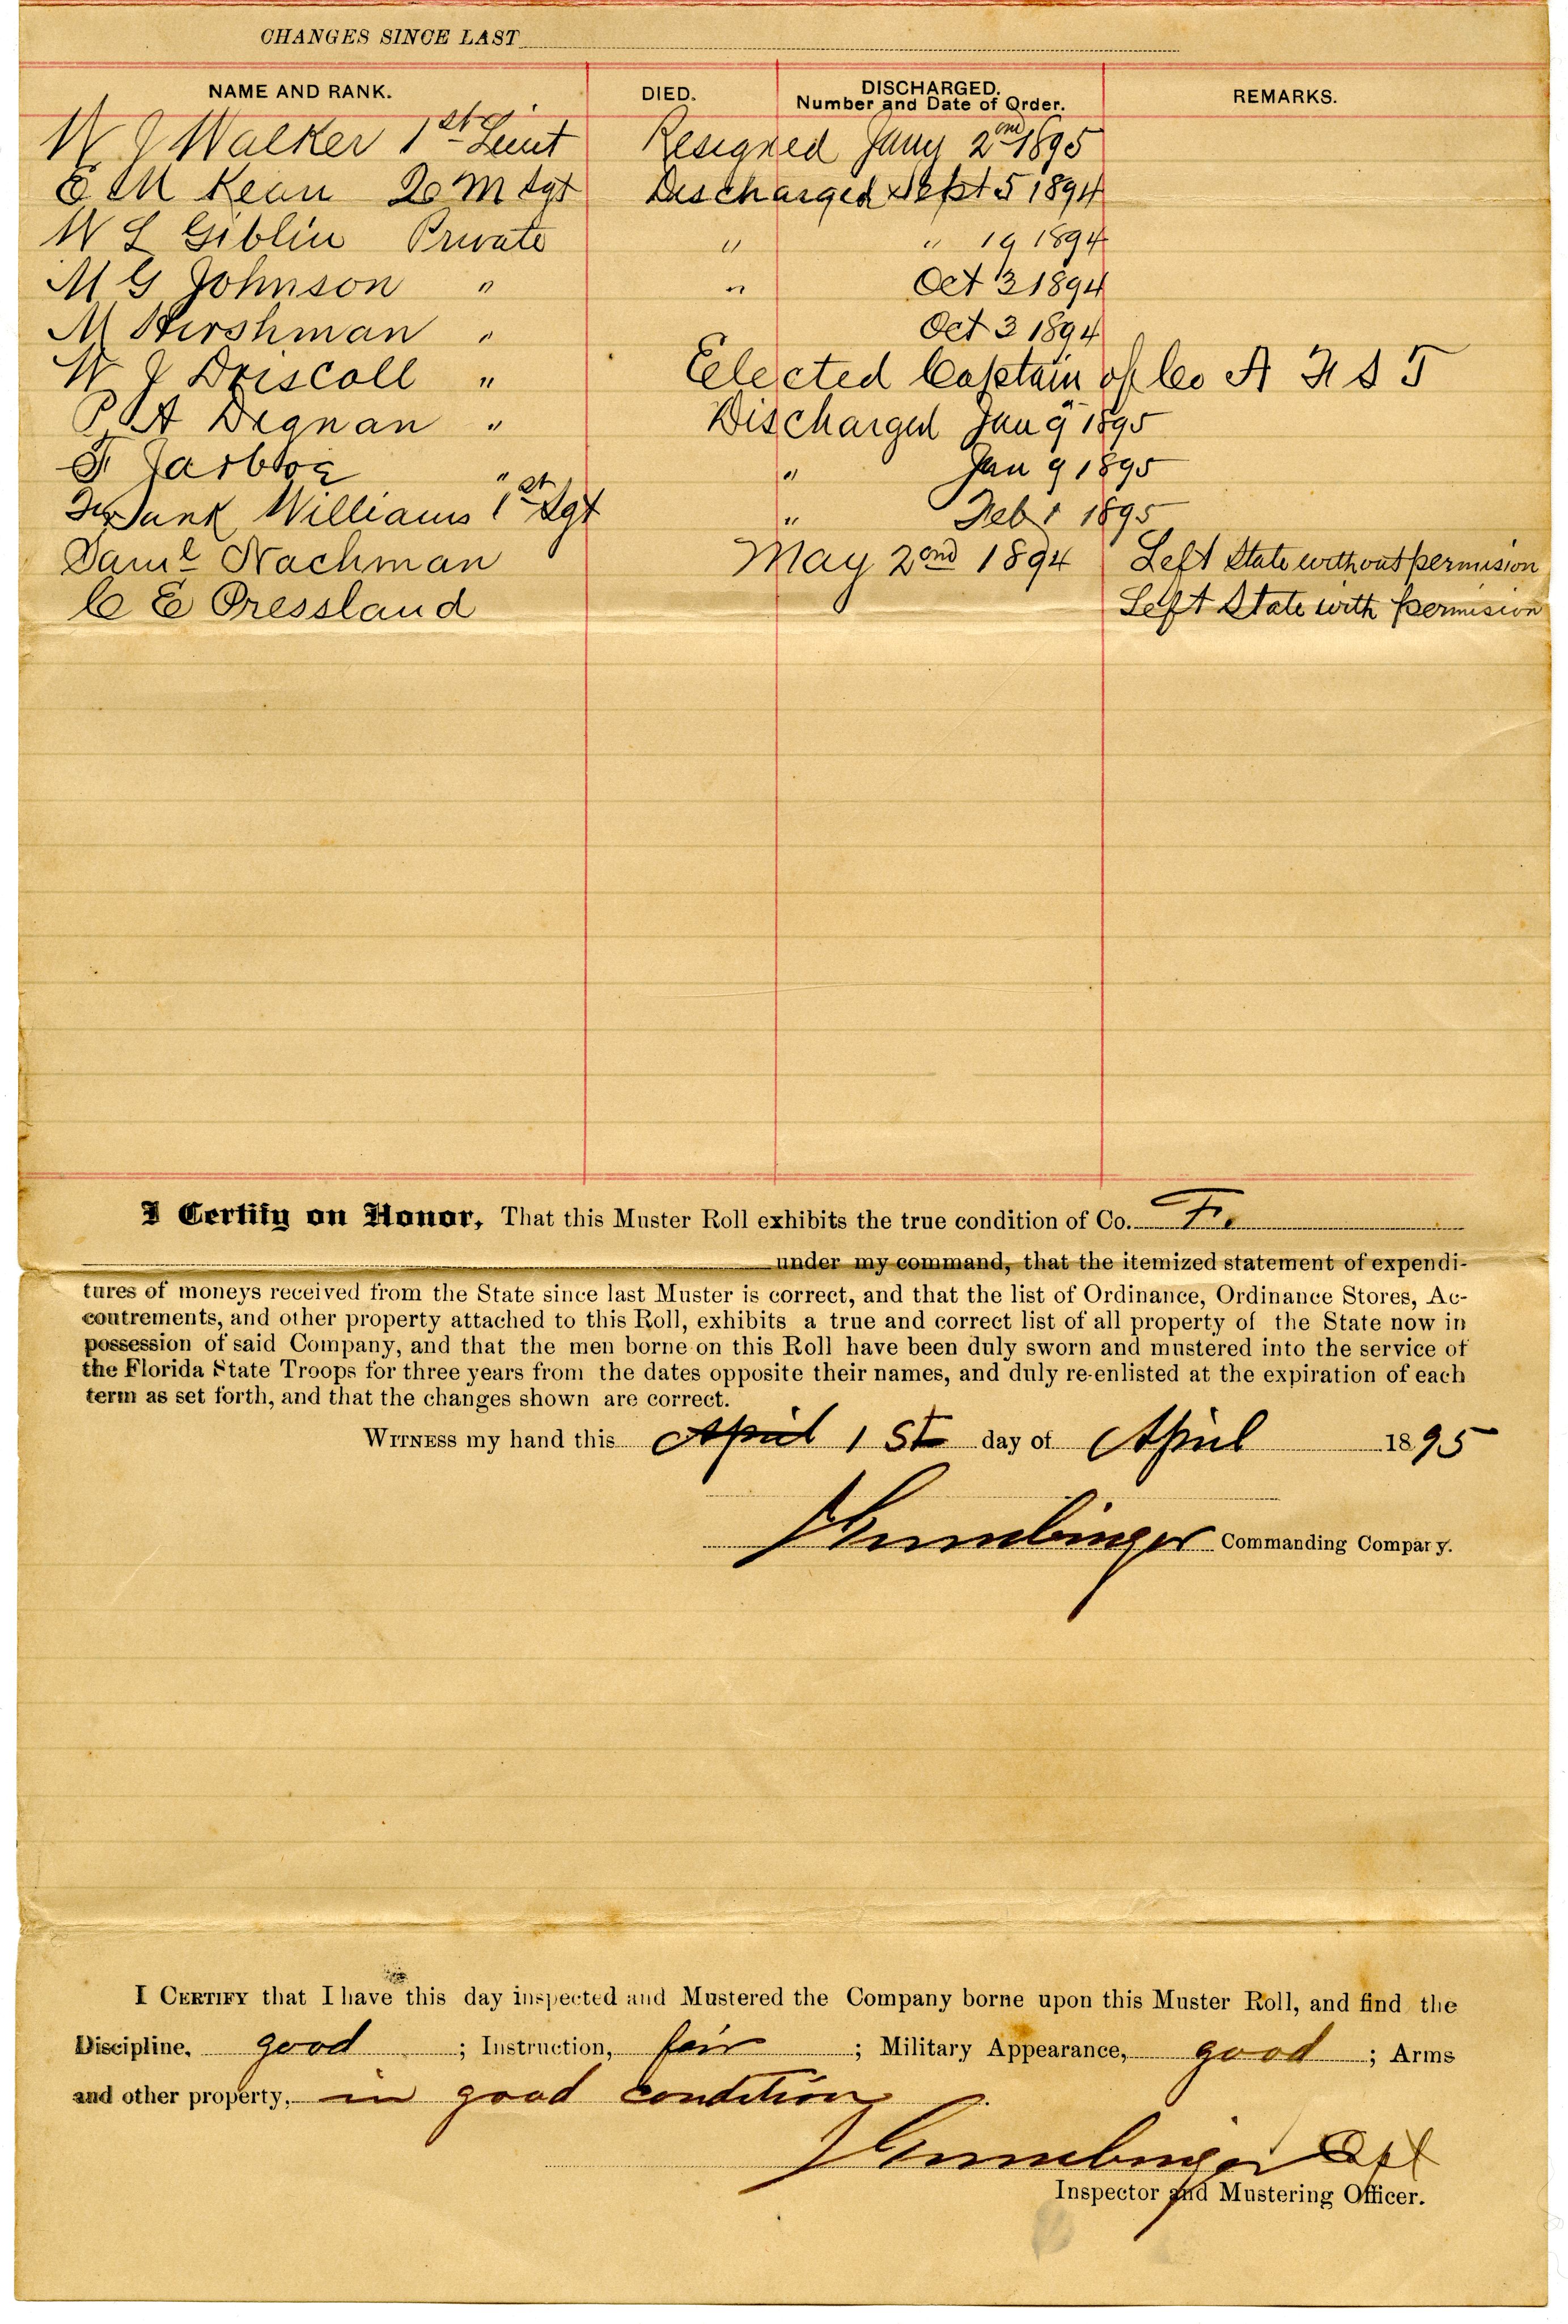 CHANGES SINCE LAST
NAME AND RANK. DIED. DISCHARGED. Number and Date of Order. REMARKS.
W J Walker 1st Lieut Resigned Jany 2nd 1895
E M Kean Q M Sgt Discharged Sept 5 1894
W L Giblin Private " " 19 1894
M G Johnson " " Oct 3 1894
M Hirshman " Oct 3 1894
W J Driscoll " Elected Captain of Co A F S T
P A Degnan " Discharged Jan 9 1895
F Jarboe " " Jan 9 1895
Frank Williams 1st Sgt " Feb 1 1895
Saml Nachman May 2nd 1894 Left State without permision
C E Pressland Left State with permision
I Certify on Honor, That this Muster Roll exhibits the true condition of Co. F.
under my command, that the itemized statement of expendi-
tures of moneys received from the State since last Muster is correct, and that the list of Ordinance, Ordinance Stores, Ac-
coutrements, and other property attached to this Roll, exhibits a true and correct list of all property of the State now in
possession of said Company, and that the men borne on this Roll have been duly sworn and mustered into the service of
the Florida State Troops for three years from the dates opposite their names, and duly re-enlisted at the expiration of each
term as set forth, and that the changes shown are correct.
WITNESS my hand this April 1 St day of April 1895
Commanding Company.
I CERTIFY that I have this day inspected and Mustered the Company borne upon this Muster Roll, and find the
Discipline, good ; Instruction, fair ; Military Appearance, good ; Arms
and other property, in good condition
Cpt
Inspector and Mustering Officer.